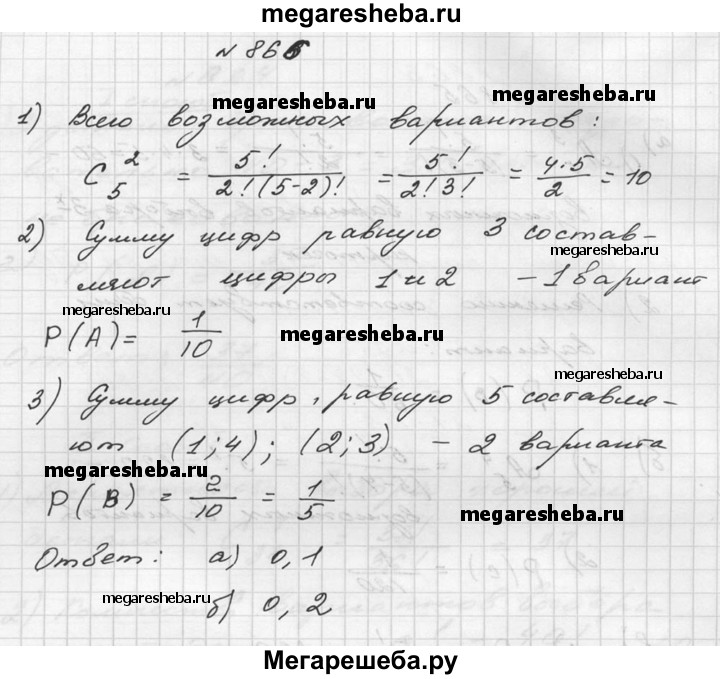 megaresheba.ru
№ 866
megaresheba.ru megaresheba.ru
1) Всего возможных вариантов:
C₅² = 5!/2!(5-2)! = 5!/2!3! = 4·5/2 = 10
2) Сумму цифр равную 3 состав-
megaresheba.ru
ляют цифры 1 и 2 - 1 вариант
megaresheba.ru
P(A) = 1/10 megaresheba.ru
megaresheba.ru
3) Сумму цифр, равную 5 составля-
ют (1;4); (2;3) - 2 варианта
megaresheba.ru
P(B) = 2/10 = 1/5
megaresheba.ru
Ответ: а) 0,1
megaresheba.ru
б) 0,2
Мегарешеба.ру